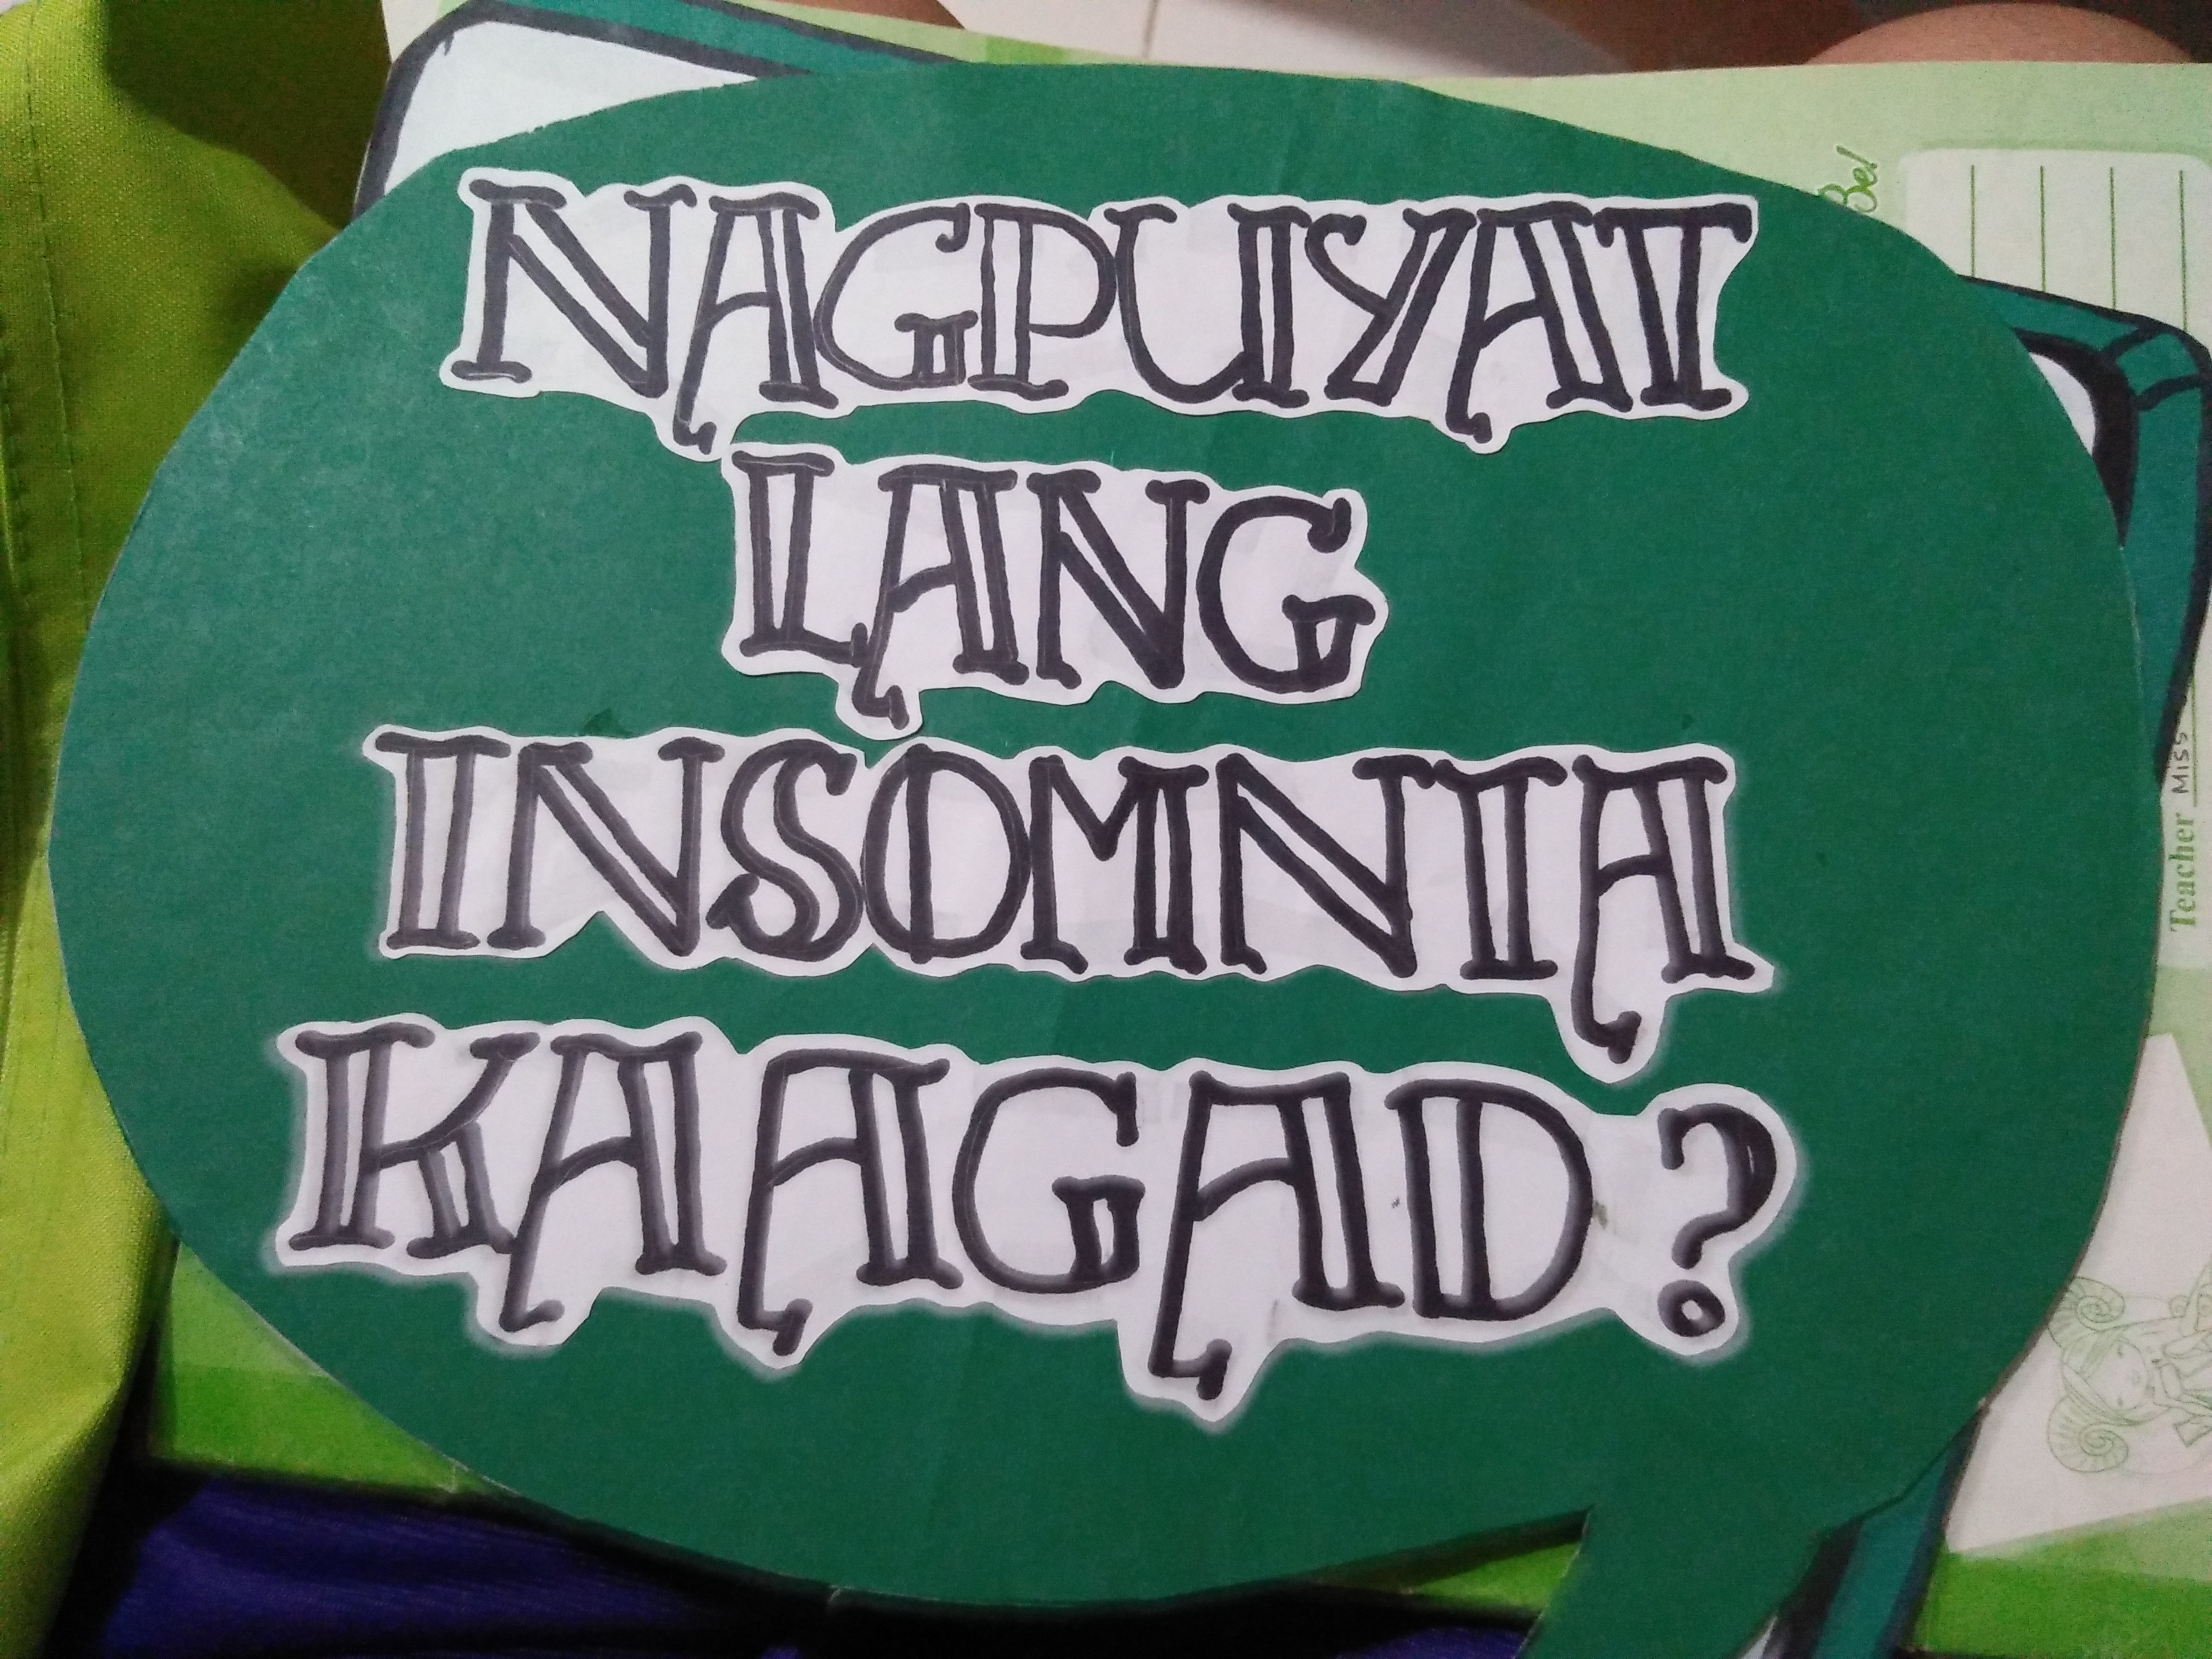 NAGPUYAT
LANG
INSOMNIA
KAAGAD?
Bel
Teacher Miss